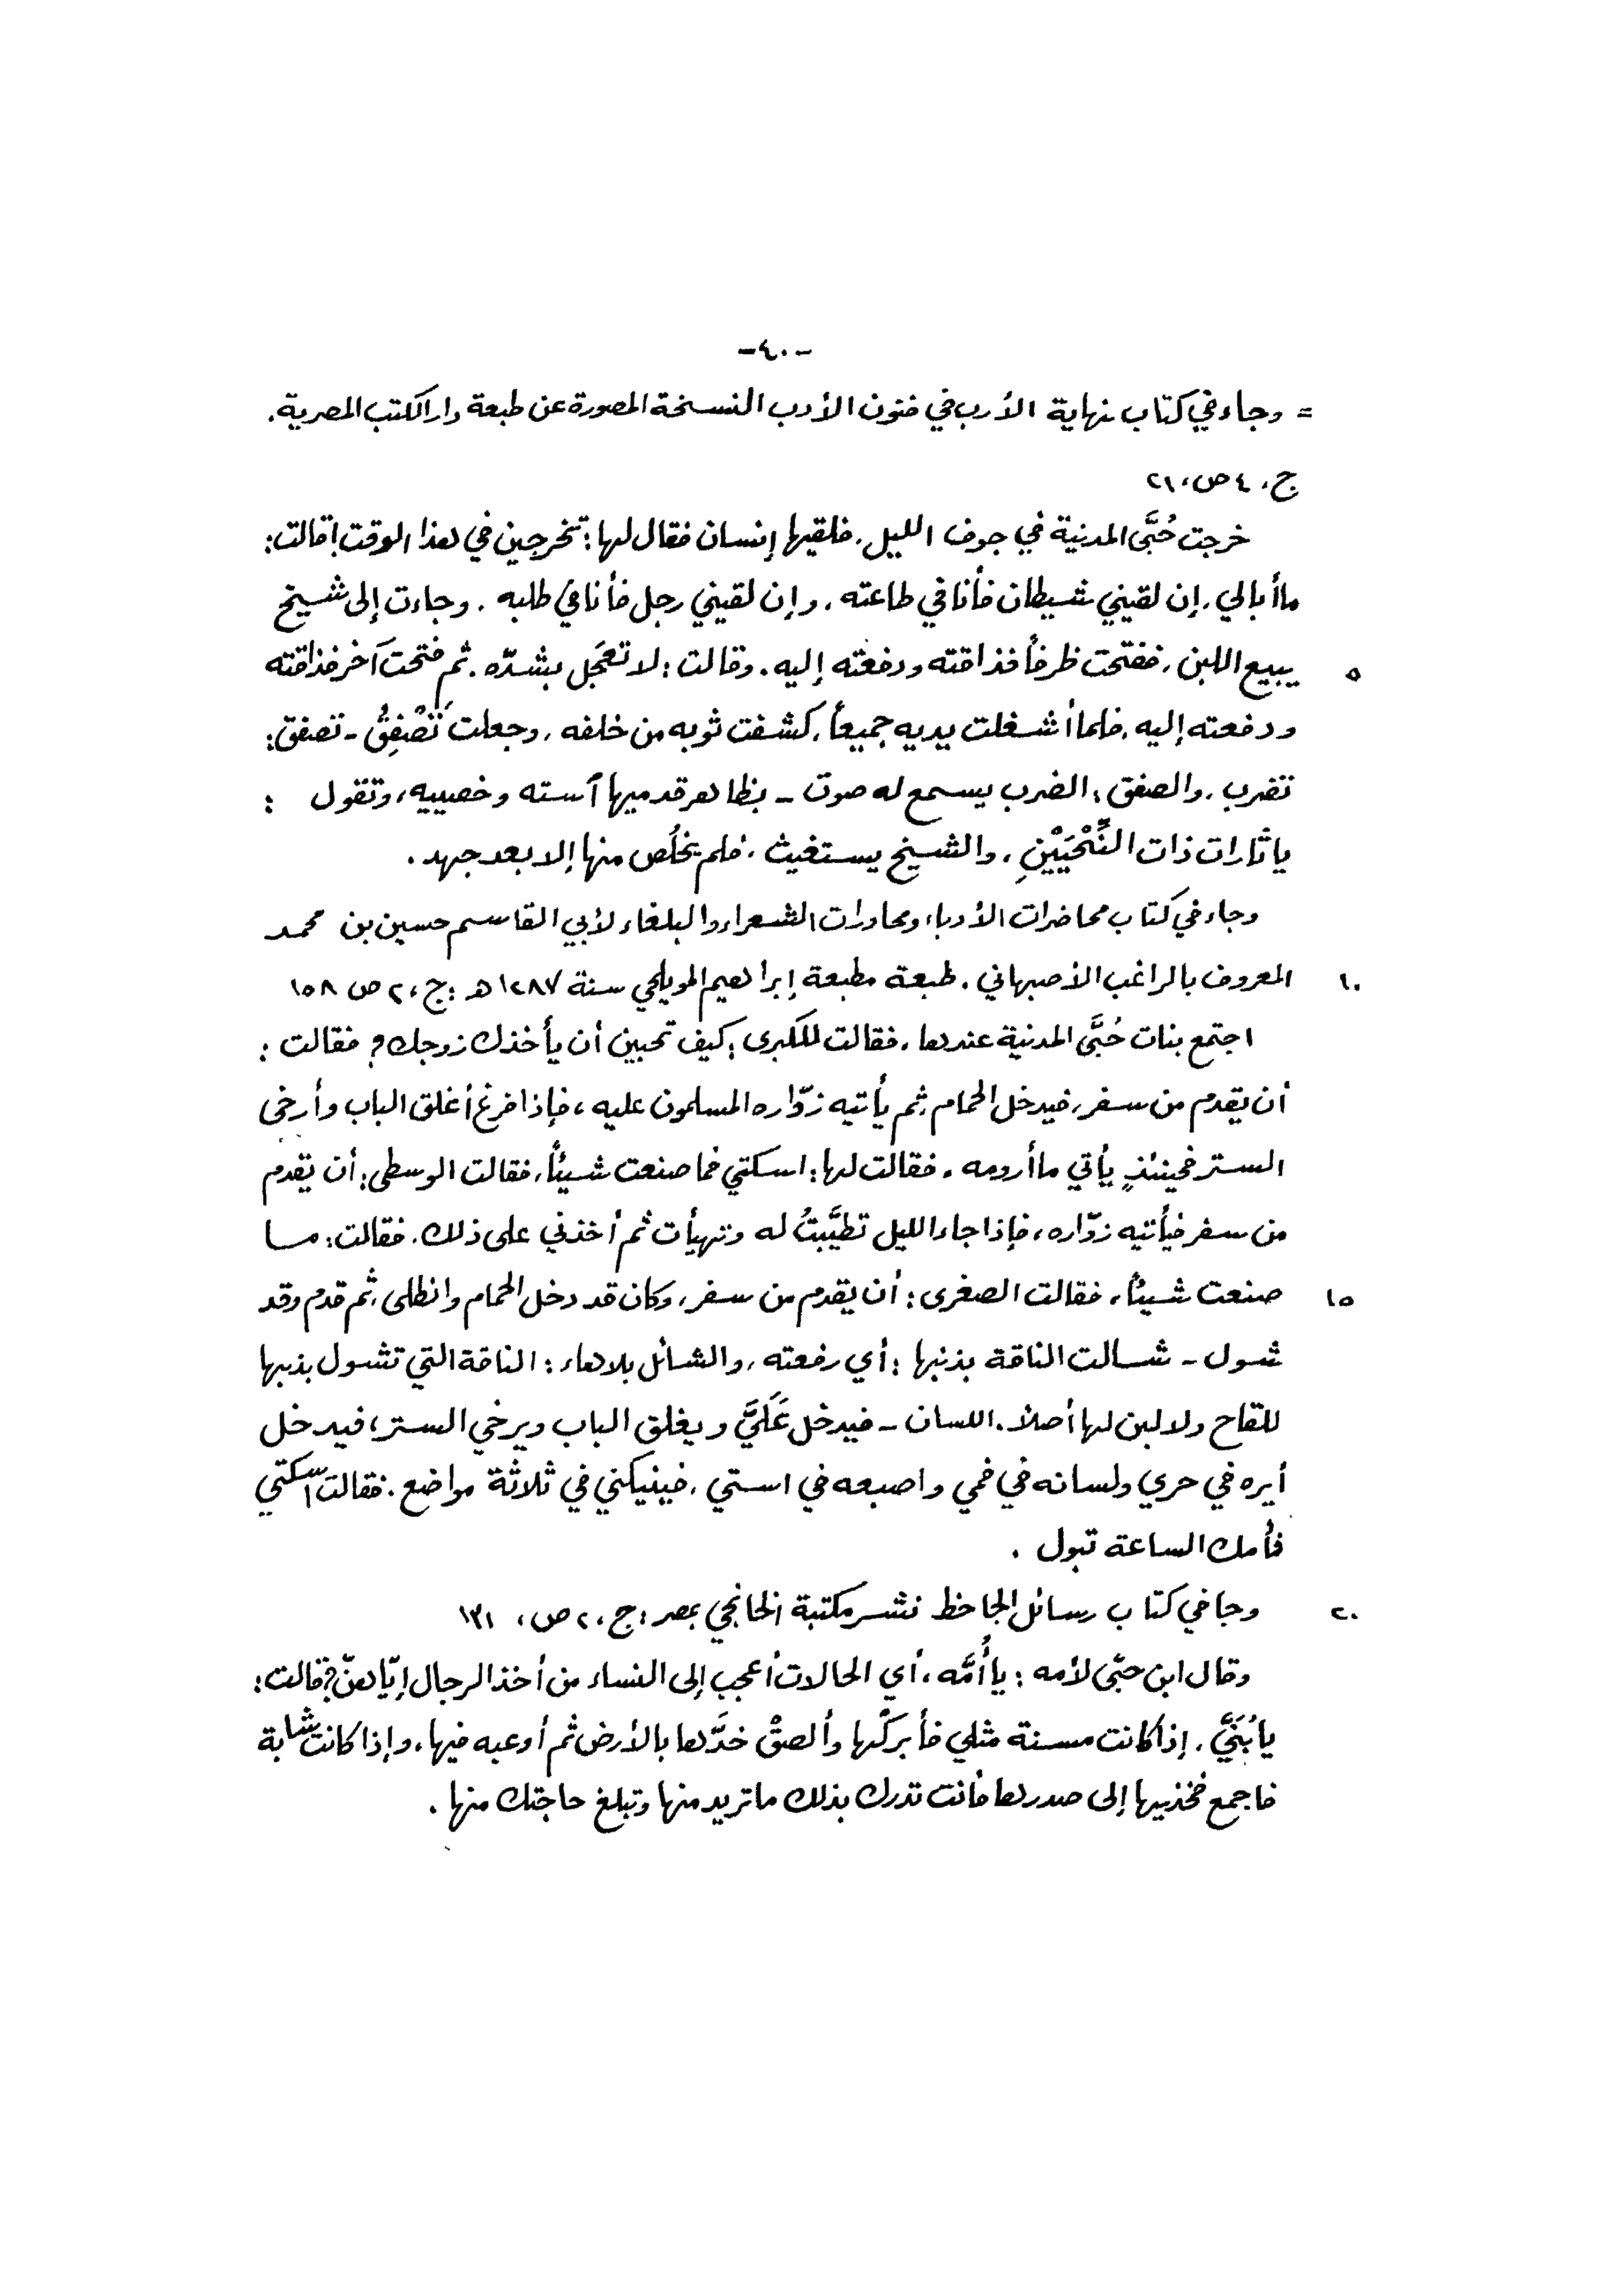 -٤٠-
= وجاء في كتاب نهاية الأرب في فنون الأدب النسخة المصورة عن طبعة دار الكتب المصرية.
ج، ٤ ص، ٢١
خرجت حُبَّى المدنية في جوف الليل، فلقيها إنسان فقال لها: تخرجين في هذا الوقت! قالت:
ما أبالي، إن لقيني شيطان فأنا في طاعته، وإن لقيني رجل فأنا في طلبه. وجاءت إلى شيخ
٥ يبيع اللبن، ففتحت ظرفاً فذاقته ودفعته إليه. وقالت: لا تعجل بشدّه. ثم فتحت آخر فذاقته
ودفعته إليه، فلما أشغلت يديه جميعاً، كشفت ثوبه من خلفه، وجعلت تَصْفِقُ - تصفق:
تضرب، والصفق: الضرب يسمع له صوت - بظاهر قدميها آسته وخصييه، وتقول :
يا ثارات ذات النِّحْيَيْنِ، والشيخ يستغيث، فلم يخلُص منها إلا بعد جهد.
وجاء في كتاب محاضرات الأدباء ومحاورات الشعراء والبلغاء لأبي القاسم حسين بن محمد
١٠ المعروف بالراغب الأصبهاني. طبعة مطبعة إبراهيم المويلحي سنة ١٢٨٧ هـ :ج، ٢ ص ١٥٨
اجتمع بنات حُبَّى المدنية عندها، فقالت للكبرى: كيف تحبين أن يأخذك زوجك؟ فقالت :
أن يقدم من سفر، فيدخل الحمام، ثم يأتيه زوّاره المسلمون عليه، فإذا فرغ أغلق الباب وأرخى
الستر فحينئذٍ يأتي ما أرومه. فقالت لها: اسكتي فما صنعت شيئاً، فقالت الوسطى: أن يقدم
من سفر فيأتيه زوّاره، فإذا جاء الليل تطيَّبتُ له وتهيأت ثم أخذني على ذلك. فقالت: ما
١٥ صنعت شيئاً، فقالت الصغرى: أن يقدم من سفر، وكان قد دخل الحمام وانطلى، ثم قدم وقد
شول - شالت الناقة بذنبها :أي رفعته، والشائل بلا هاء: الناقة التي تشول بذبها
للقاح ولا لبن لها أصلاً. اللسان - فيدخل عَلَيَّ ويغلق الباب ويرخي الستر، فيدخل
أيره في حري ولسانه في فمي واصبعه في استي، فينيكني في ثلاثة مواضع. فقالت اسكتي
فأمك الساعة تبول .
٢٠ وجا في كتاب رسائل الجاحظ نشر مكتبة الخانجي بمصر :ج، ٢ ص، ١٣١
وقال ابن حبّى لأمه : يا أُمَّه، أي الحالات أعجب إلى النساء من أخذ الرجال إيّاهنّ؟ قالت:
يا بُنَيَّ، إذا كانت مسنة مثلي فأبركْها وألصقْ خدَّها بالأرض ثم أوعبه فيها، وإذا كانت شابة
فاجمع فخذيها إلى صدرها فأنت تدرك بذلك ما تريد منها وتبلغ حاجتك منها .